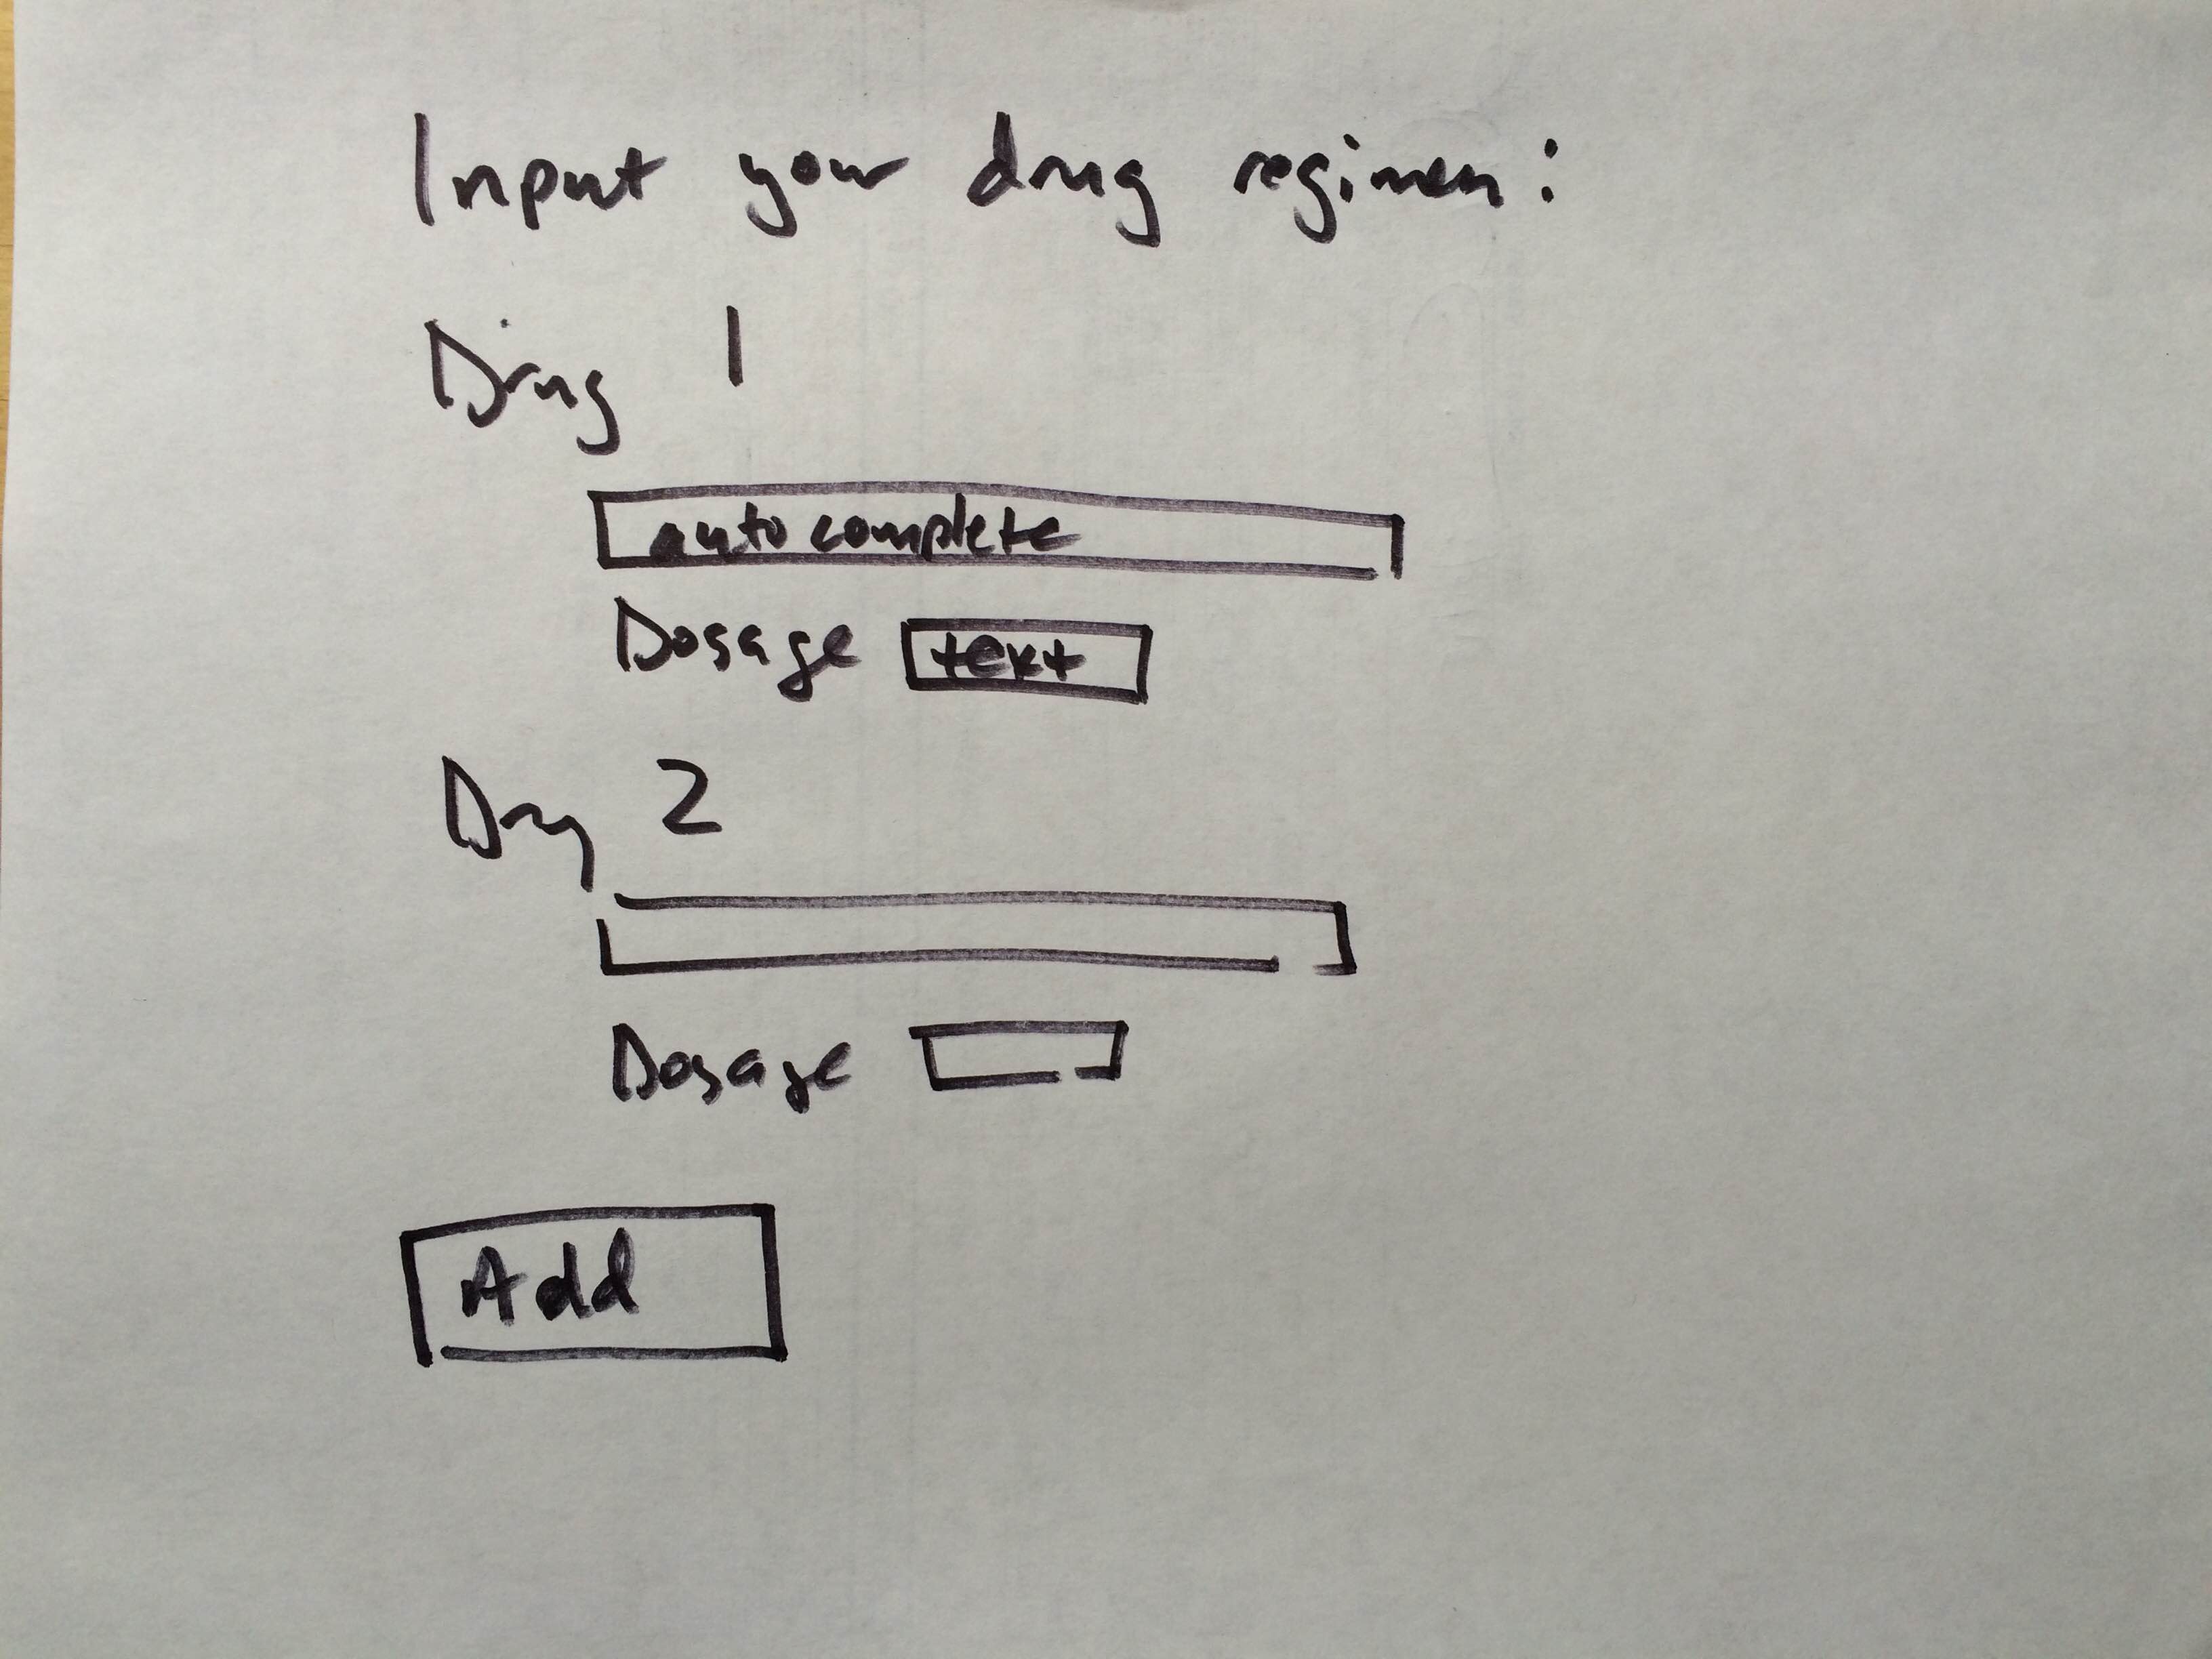 Input your drug regimen:
Drug 1
autocomplete
Dosage text
Drug 2
Dosage
Add